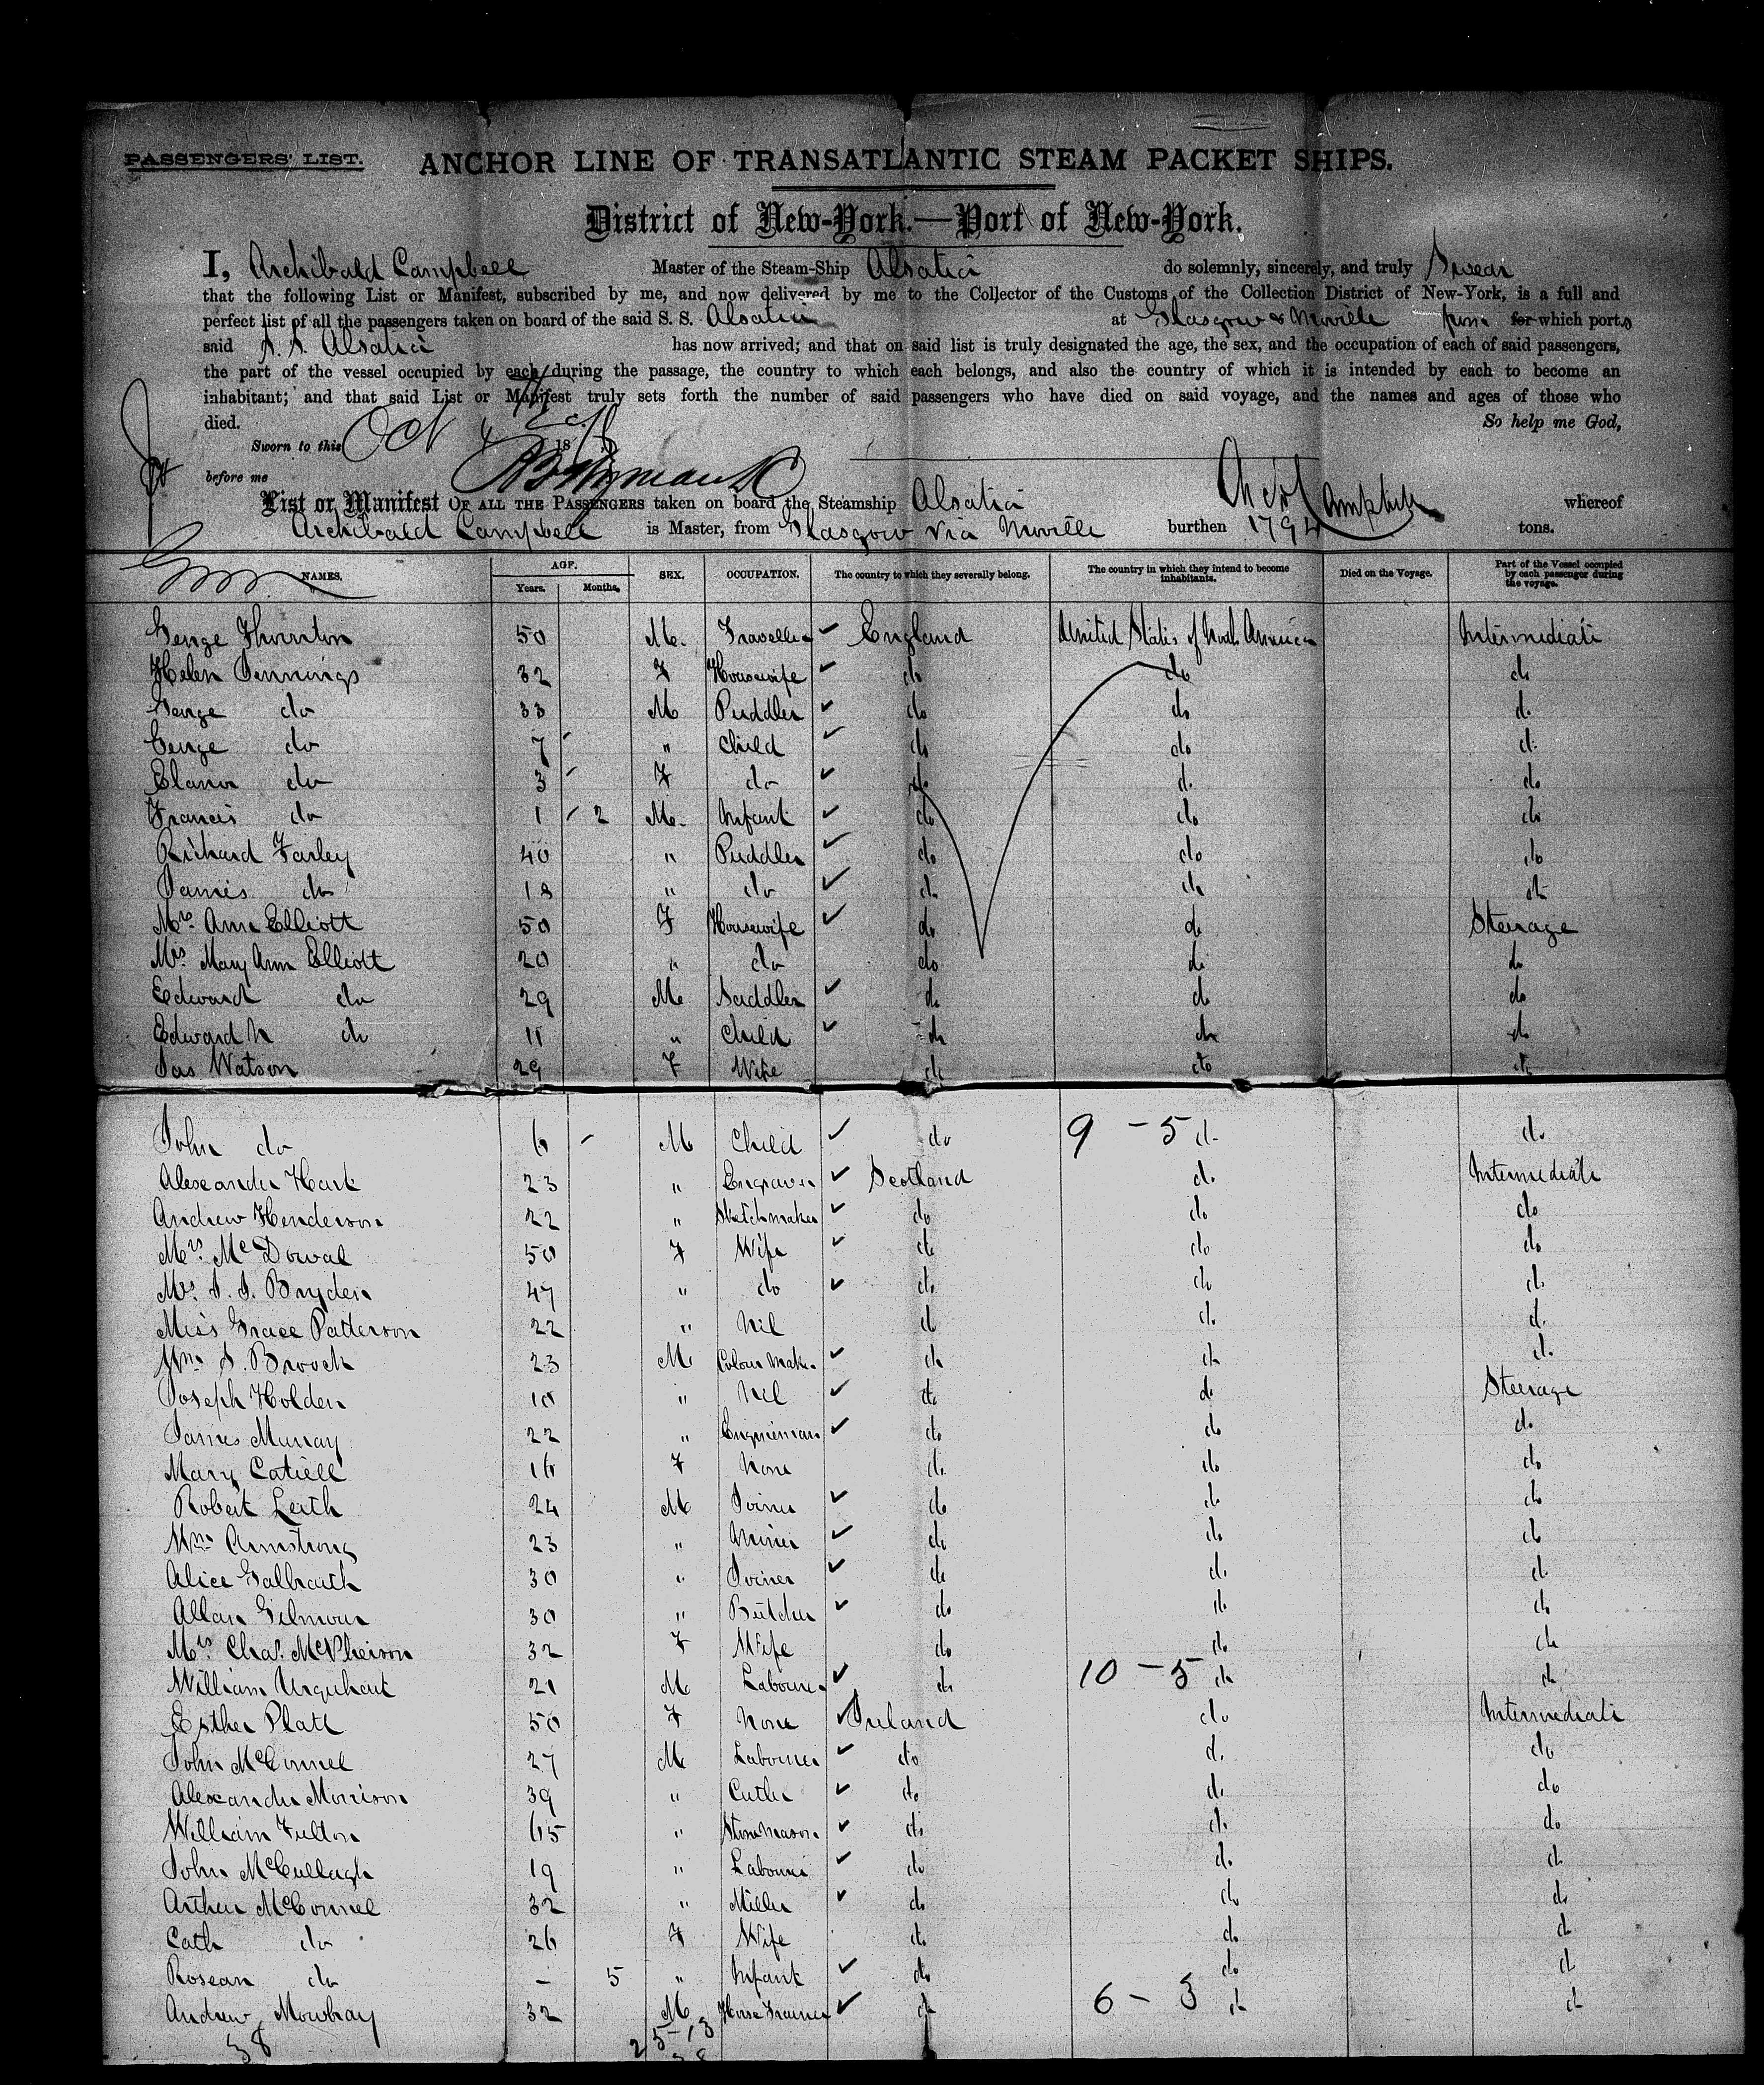 PASSENGERS' LIST. ANCHOR LINE OF TRANSATLANTIC STEAM PACKET SHIPS.
District of New-York.—Port of New-York.
I, Archibald Campbell Master of the Steam-Ship Alsatia do solemnly, sincerely, and truly Swear
that the following List or Manifest, subscribed by me, and now delivered by me to the Collector of the Customs of the Collection District of New-York, is a full and
perfect list of all the passengers taken on board of the said S. S. Alsatia at Glasgow & Moville from for which ports
said S. S. Alsatia has now arrived; and that on said list is truly designated the age, the sex, and the occupation of each of said passengers,
the part of the vessel occupied by each during the passage, the country to which each belongs, and also the country of which it is intended by each to become an
inhabitant; and that said List or Manifest truly sets forth the number of said passengers who have died on said voyage, and the names and ages of those who
died. So help me God,
Sworn to this Oct 18
before me
List or Manifest OF ALL THE PASSENGERS taken on board the Steamship Alsatia Arch Campbell whereof
Archibald Campbell is Master, from Glasgow via Moville burthen 1794 tons.
NAMES. AGE. Years. Months. SEX. OCCUPATION. The country to which they severally belong. The country in which they intend to become inhabitants. Died on the Voyage. Part of the Vessel occupied by each passenger during the voyage.
George Thornton 50 M. Traveller England United States of North America Intermediate
Helen Jennings 32 F Housewife do do do
George do 33 M Puddler do do do
George do 7 " Child do do do
Elanor do 3 F do do do do
Francis do 1 2 M. Infant do do do
Richard Farley 40 " Puddler do do do
James do 18 " do do do do
Mrs. Ann Elliott 50 F Housewife do do Steerage
Mrs. Mary Ann Elliott 20 " do do do do
Edward do 29 M Saddler do do do
Edward do 11 " Child do do do
Jas Watson 29 F Wife do do do
John do 6 M Child do 9 - 5 do do
Alexander Hart 23 " Engraver Scotland do Intermediate
Andrew Henderson 22 " Sketchmaker do do do
Mrs. McDowal 50 F Wife do do do
Mrs. J. J. Bryden 47 " do do do do
Miss Grace Patterson 22 " Nil do do do
Wm. S. Broock 23 M Colour Maker do do do
Joseph Holden 10 " Nil do do Steerage
James Murray 22 " Engineman do do do
Mary Catiell 16 F None do do do
Robert Leith 24 M Joiner do do do
Wm. Armstrong 23 " Miner do do do
Alice Galbraith 30 " Joiner do do do
Allan Gilmour 30 " Butcher do do do
Mrs. Chas. McPherson 32 F Wife do do do
William Urquhart 21 M Labourer do 10 - 5 do do
Esther Platt 50 F None Ireland do Intermediate
John McConnel 27 M Labourer do do do
Alexander Morrison 39 " Cutler do do do
William Fulton 65 " Stone Mason do do do
John McCullagh 19 " Labourer do do do
Arthur McConnel 32 " Miller do do do
Cath do 26 F Wife do do do
Rosean do - 5 " Infant do do do
Andrew Mowbray 32 M Horse Trainer do 6 - 3 do do
38 25-13
38